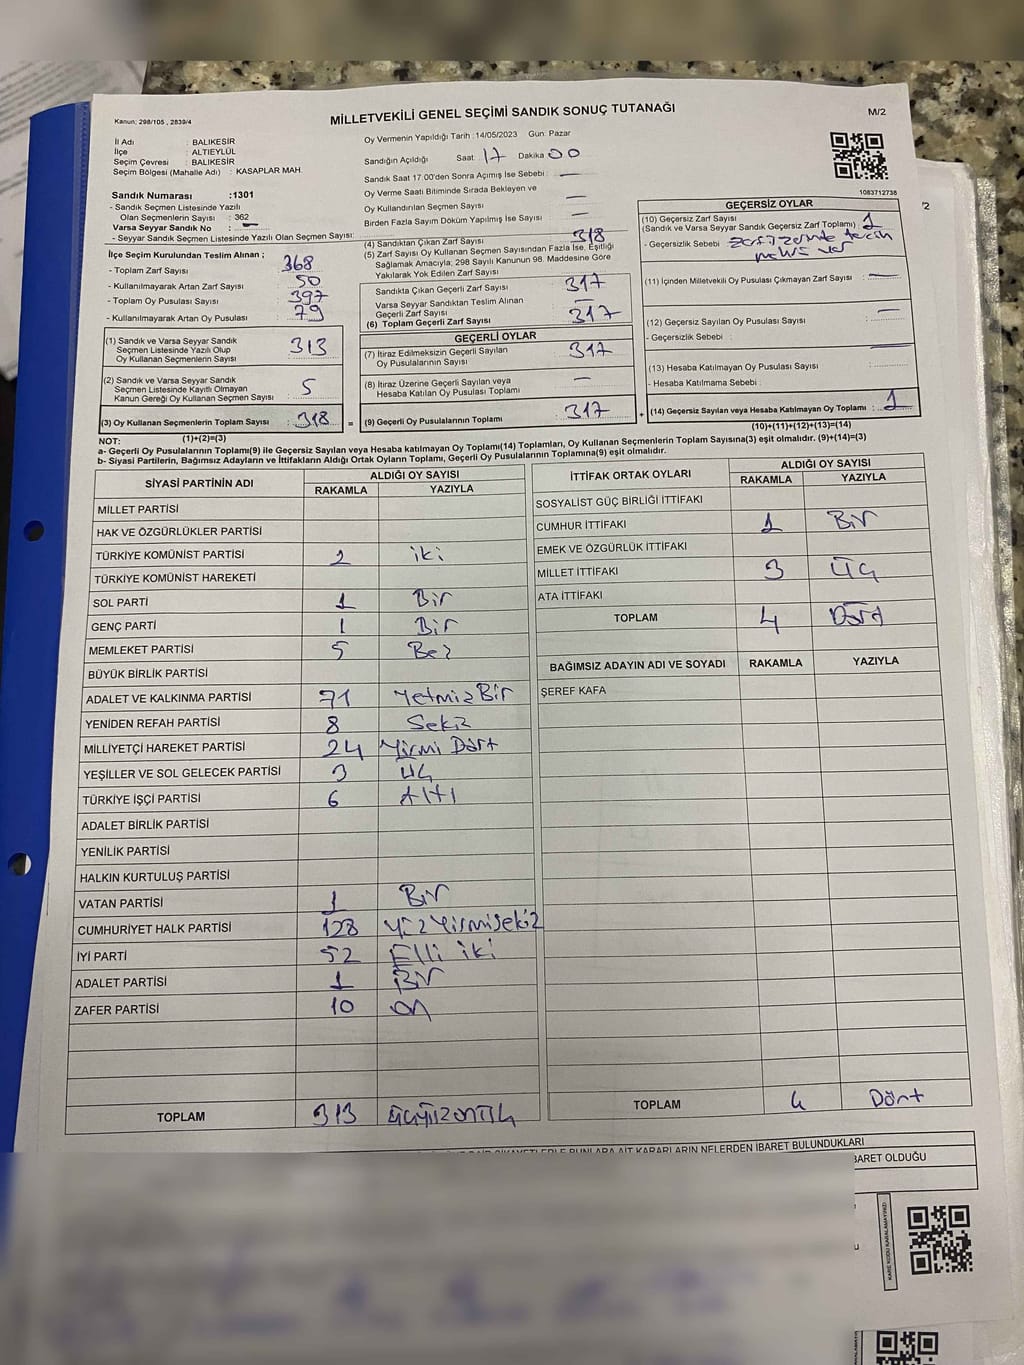 Kanun; 298/105 , 2839/4
MİLLETVEKİLİ GENEL SEÇİMİ SANDIK SONUÇ TUTANAĞI
M/2
İl Adı : BALIKESİR
İlçe : ALTIEYLÜL
Seçim Çevresi : BALIKESİR
Seçim Bölgesi (Mahalle Adı) : KASAPLAR MAH.
Sandık Numarası :1301
- Sandık Seçmen Listesinde Yazılı
Olan Seçmenlerin Sayısı : 362
Varsa Seyyar Sandık No : —
- Seyyar Sandık Seçmen Listesinde Yazılı Olan Seçmen Sayısı:
İlçe Seçim Kurulundan Teslim Alınan ;
- Toplam Zarf Sayısı : 368
- Kullanılmayarak Artan Zarf Sayısı : 50
- Toplam Oy Pusulası Sayısı : 397
- Kullanılmayarak Artan Oy Pusulası : 79
(1) Sandık ve Varsa Seyyar Sandık
Seçmen Listesinde Yazılı Olup
Oy Kullanan Seçmenlerin Sayısı : 313
(2) Sandık ve Varsa Seyyar Sandık
Seçmen Listesinde Kayıtlı Olmayan
Kanun Gereği Oy Kullanan Seçmen Sayısı : 5
(3) Oy Kullanan Seçmenlerin Toplam Sayısı : 318
(1)+(2)=(3)
Oy Vermenin Yapıldığı Tarih : 14/05/2023 Gün: Pazar
Sandığın Açıldığı Saat 17 Dakika 00
Sandık Saat 17.00'den Sonra Açımış İse Sebebi : —
Oy Verme Saati Bitiminde Sırada Bekleyen ve
Oy Kullandırılan Seçmen Sayısı —
Birden Fazla Sayım Döküm Yapılmış İse Sayısı —
(4) Sandıktan Çıkan Zarf Sayısı 318
(5) Zarf Sayısı Oy Kullanan Seçmen Sayısından Fazla İse, Eşitliği
Sağlamak Amacıyla; 298 Sayılı Kanunun 98. Maddesine Göre
Yakılarak Yok Edilen Zarf Sayısı
Sandıkta Çıkan Geçerli Zarf Sayısı 317
Varsa Seyyar Sandıktan Teslim Alınan
Geçerli Zarf Sayısı —
(6) Toplam Geçerli Zarf Sayısı 317
GEÇERLİ OYLAR
(7) İtiraz Edilmeksizin Geçerli Sayılan
Oy Pusulalarının Sayısı 317
(8) İtiraz Üzerine Geçerli Sayılan veya
Hesaba Katılan Oy Pusulası Toplamı —
= (9) Geçerli Oy Pusulalarının Toplamı 317
1083712738
GEÇERSİZ OYLAR
(10) Geçersiz Zarf Sayısı
(Sandık ve Varsa Seyyar Sandık Geçersiz Zarf Toplamı) : 1
- Geçersizlik Sebebi zarf üzerinde tercih
mührü var
(11) İçinden Milletvekili Oy Pusulası Çıkmayan Zarf Sayısı : —
(12) Geçersiz Sayılan Oy Pusulası Sayısı : —
- Geçersizlik Sebebi :
(13) Hesaba Katılmayan Oy Pusulası Sayısı :
- Hesaba Katılmama Sebebi :
+ (14) Geçersiz Sayılan veya Hesaba Katılmayan Oy Toplamı : 1
(10)+(11)+(12)+(13)=(14)
NOT:
a- Geçerli Oy Pusulalarının Toplamı(9) ile Geçersiz Sayılan veya Hesaba Katılmayan Oy Toplamı(14) Toplamları, Oy Kullanan Seçmenlerin Toplam Sayısına(3) eşit olmalıdır. (9)+(14)=(3)
b- Siyasi Partilerin, Bağımsız Adayların ve İttifakların Aldığı Oyların Toplamı, Geçerli Oy Pusulalarının Toplamına(9) eşit olmalıdır.
SİYASİ PARTİNİN ADI ALDIĞI OY SAYISI
RAKAMLA YAZIYLA
MİLLET PARTİSİ
HAK VE ÖZGÜRLÜKLER PARTİSİ
TÜRKİYE KOMÜNİST PARTİSİ 2 iki
TÜRKİYE KOMÜNİST HAREKETİ
SOL PARTİ 1 Bir
GENÇ PARTİ 1 Bir
MEMLEKET PARTİSİ 5 Beş
BÜYÜK BİRLİK PARTİSİ
ADALET VE KALKINMA PARTİSİ 71 Yetmiş Bir
YENİDEN REFAH PARTİSİ 8 Sekiz
MİLLİYETÇİ HAREKET PARTİSİ 24 Yirmi Dört
YEŞİLLER VE SOL GELECEK PARTİSİ 3 üç
TÜRKİYE İŞÇİ PARTİSİ 6 Altı
ADALET BİRLİK PARTİSİ
YENİLİK PARTİSİ
HALKIN KURTULUŞ PARTİSİ
VATAN PARTİSİ 1 Bir
CUMHURİYET HALK PARTİSİ 128 Yüz Yirmisekiz
İYİ PARTİ 52 Elli iki
ADALET PARTİSİ 1 Bir
ZAFER PARTİSİ 10 on
TOPLAM 313 üçyüzonüç
İTTİFAK ORTAK OYLARI ALDIĞI OY SAYISI
RAKAMLA YAZIYLA
SOSYALİST GÜÇ BİRLİĞİ İTTİFAKI
CUMHUR İTTİFAKI 1 Bir
EMEK VE ÖZGÜRLÜK İTTİFAKI
MİLLET İTTİFAKI 3 üç
ATA İTTİFAKI
TOPLAM 4 Dört
BAĞIMSIZ ADAYIN ADI VE SOYADI RAKAMLA YAZIYLA
ŞEREF KAFA
TOPLAM 4 Dört
BUNLARA AİT KARARLARIN NELERDEN İBARET BULUNDUKLARI
BARET OLDUĞU